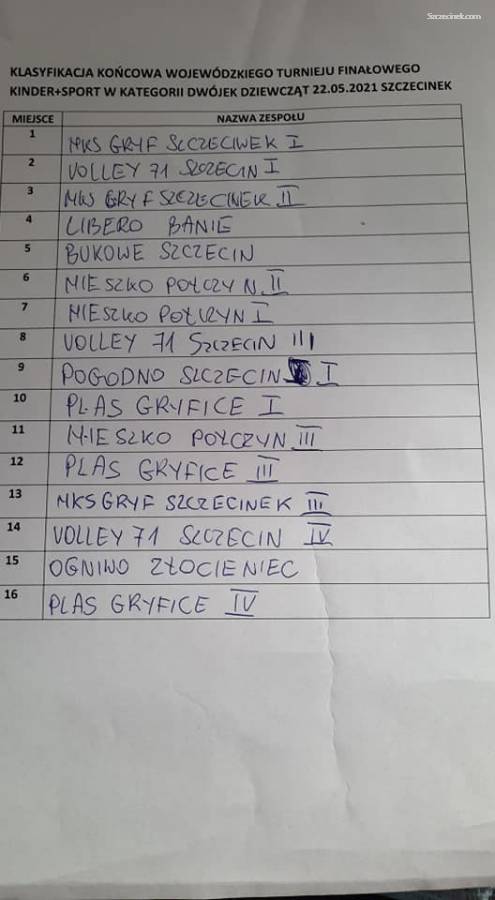 Szczecinek.com
KLASYFIKACJA KOŃCOWA WOJEWÓDZKIEGO TURNIEJU FINAŁOWEGO
KINDER+SPORT W KATEGORII DWÓJEK DZIEWCZĄT 22.05.2021 SZCZECINEK
MIEJSCE NAZWA ZESPOŁU
1 MKS GRYF SZCZECINEK I
2 VOLLEY 71 SZCZECIN I
3 MKS GRYF SZCZECINEK II
4 LIBERO BANIE
5 BUKOWE SZCZECIN
6 MIESZKO POŁCZYN II
7 MIESZKO POŁCZYN I
8 VOLLEY 71 SZCZECIN III
9 POGODNO SZCZECIN I
10 PLAS GRYFICE I
11 MIESZKO POŁCZYN III
12 PLAS GRYFICE III
13 MKS GRYF SZCZECINEK III
14 VOLLEY 71 SZCZECIN IV
15 OGNIWO ZŁOCIENIEC
16 PLAS GRYFICE IV